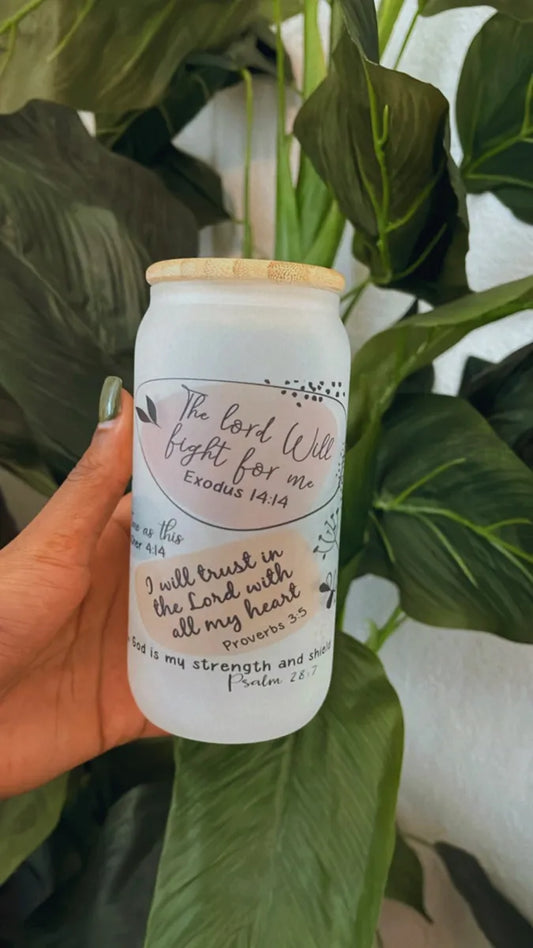 The lord Will
fight for me
Exodus 14:14
as this
4:14
I will trust in
the Lord with
all my heart
Proverbs 3:5
God is my strength and shield
Psalm 28:7